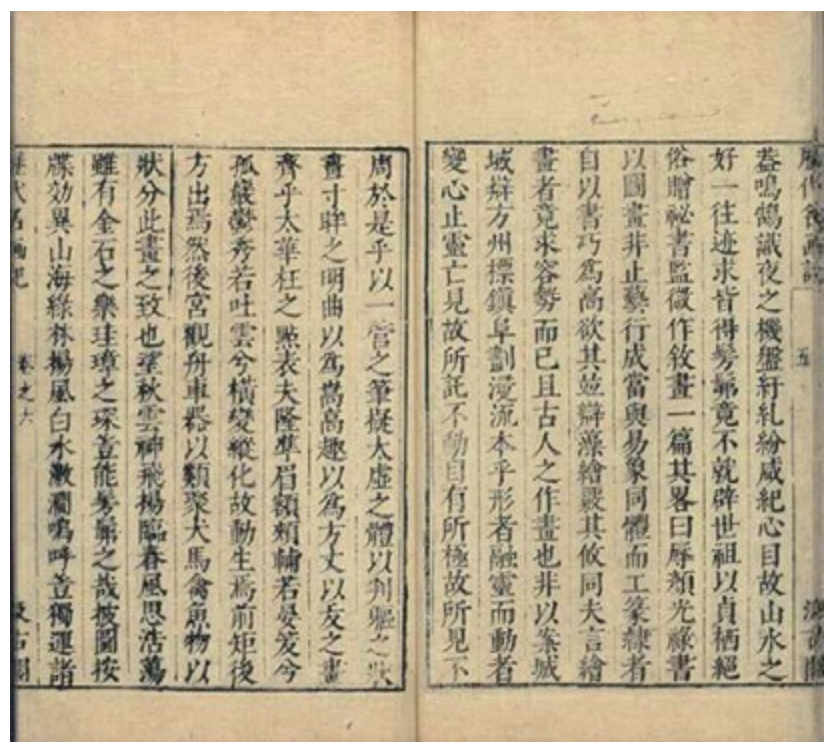 五
蓋鳴鵠識夜之機盤紆糺紛咸紀心目故山水之
好一往迹求皆得髣髴竟不就辟世祖以貞栖絕
俗贈祕書監微作敘畫一篇其畧曰辱顏光祿書
以圖畫非止藝行成當與易象同體而工篆隸者
自以書巧為高欲其並辯藻繪覈其攸同夫言繪
畫者竟求容勢而已且古人之作畫也非以案城
域辯方州摽鎮阜劃浸流本乎形者融靈而動者
變心止靈亡見故所託不動目有所極故所見不
周於是乎以一管之筆擬太虛之體以判軀之狀
畫寸眸之明曲以為嵩高趣以為方丈以友之畫
齊乎太華枉之點表夫隆準眉額頰輔若晏笑兮
孤巖鬱秀若吐雲兮橫變縱化故動生焉前矩後
方出焉然後宮觀舟車器以類聚犬馬禽魚物以
狀分此畫之致也望秋雲神飛揚臨春風思浩蕩
雖有金石之樂珪璋之琛豈能髣髴之哉披圖按
牒効異山海綠林揚風白水激澗嗚呼豈獨運諸
歷代名畫記 卷之六 汲古閣